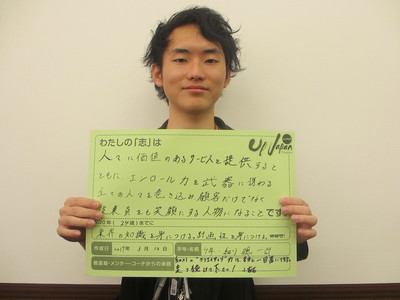 わたしの「志」は
UN Japan
人々に価値のあるサービスを提供すると
ともに エンロール力を武器に関わる
全ての人々を巻き込み顧客だけでなく
従業員をも笑顔にする人物になることです
(29歳)までに
業界の知識を身につける。計画性を身につける。
作成日 2017年 3月 16日
学年・氏名
教室長・メンター・コーチからの承認